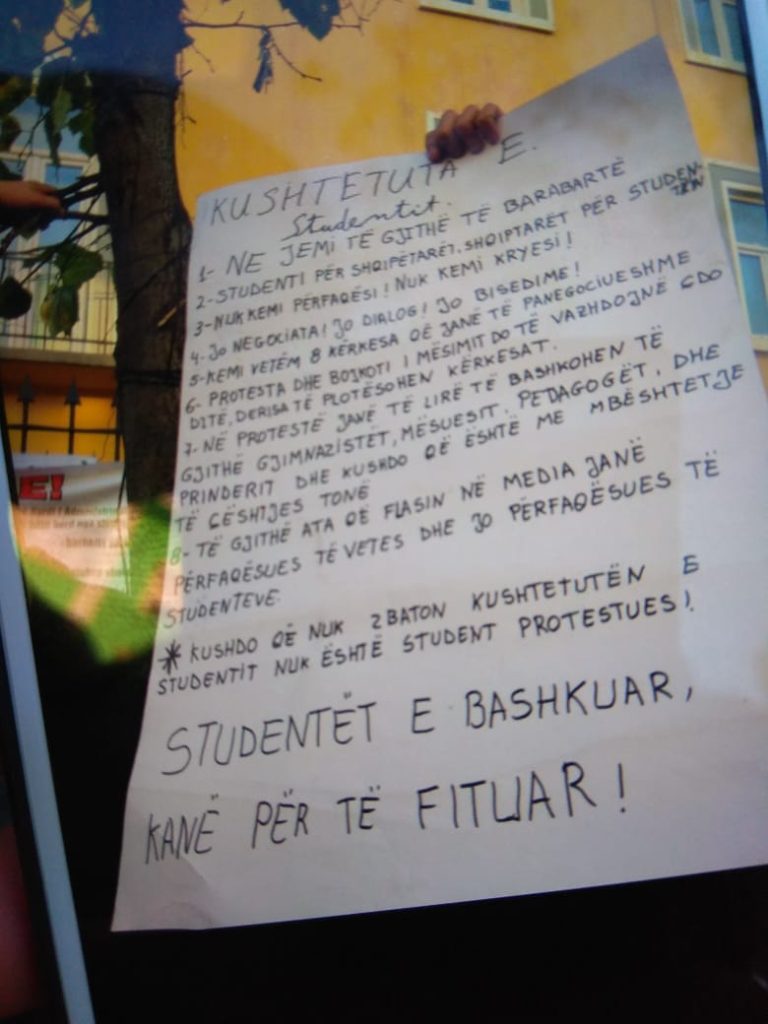 KUSHTETUTA E.
Studentit.
1- NE JEMI TË GJITHË TË BARABARTË
2- STUDENTI PËR SHQIPËTARËT, SHQIPTARËT PËR STUDEN-
TËN
3- NUK KEMI PËRFAQËSI! NUK KEMI KRYESI!
4- JO NEGOCIATA! JO DIALOG! JO BISEDIME!
5- KEMI VETËM 8 KËRKESA QË JANË TË PANEGOCIUESHME
6- PROTESTA DHE BOJKOTI I MËSIMIT DO TË VAZHDOJNË ÇDO
DITË, DERISA TË PLOTËSOHEN KËRKESAT.
7- NË PROTESTË JANË TË LIRË TË BASHKOHEN TË
GJITHË GJIMNAZISTËT, MËSUESIT, PEDAGOGËT, DHE
PRINDERIT DHE KUSHDO QË ËSHTË ME MBËSHTETJE
TË ÇËSHTJES TONË
8- TË GJITHË ATA QË FLASIN NË MEDIA JANË
PËRFAQËSUES TË VETES DHE JO PËRFAQËSUES TË
STUDENTEVE.
* KUSHDO QË NUK ZBATON KUSHTETUTËN E
STUDENTIT NUK ËSHTË STUDENT PROTESTUES!
STUDENTËT E BASHKUAR,
KANË PËR TË FITUAR!
E!